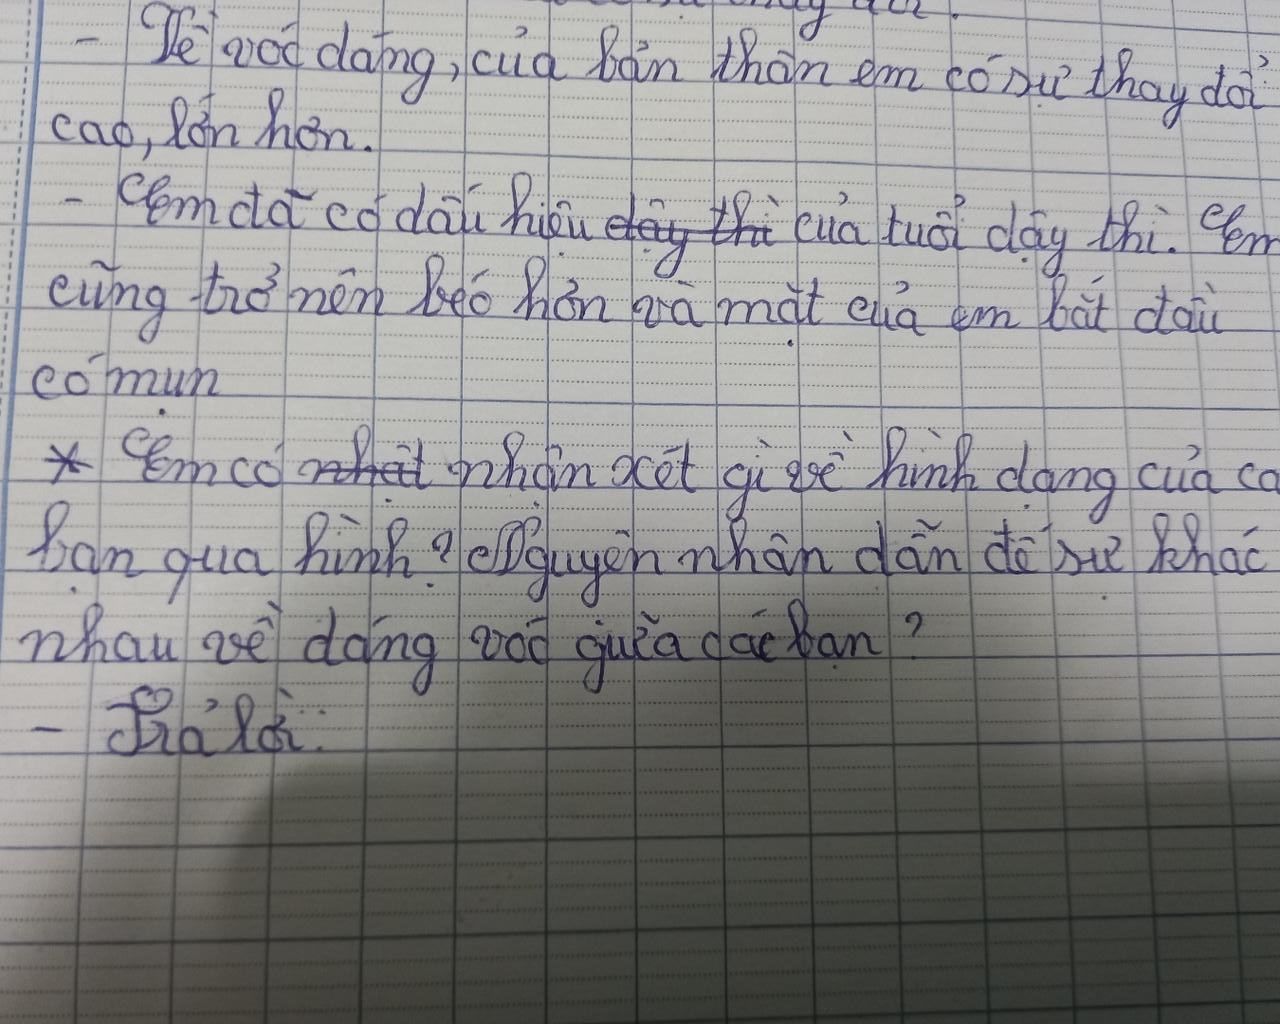 - Về vóc dáng, của bản thân em có sự thay đổi
cao, lớn hơn.
- Em đã có dấu hiệu dậy thì của tuổi dậy thì. Em
cũng trở nên béo hơn và mặt của em bắt đầu
có mụn
* Em có nhật nhận xét gì về hình dạng của cá
bạn qua hình? Nguyên nhân dẫn đế sự khác
nhau về dáng vóc giữa các bạn?
- Trả lời: